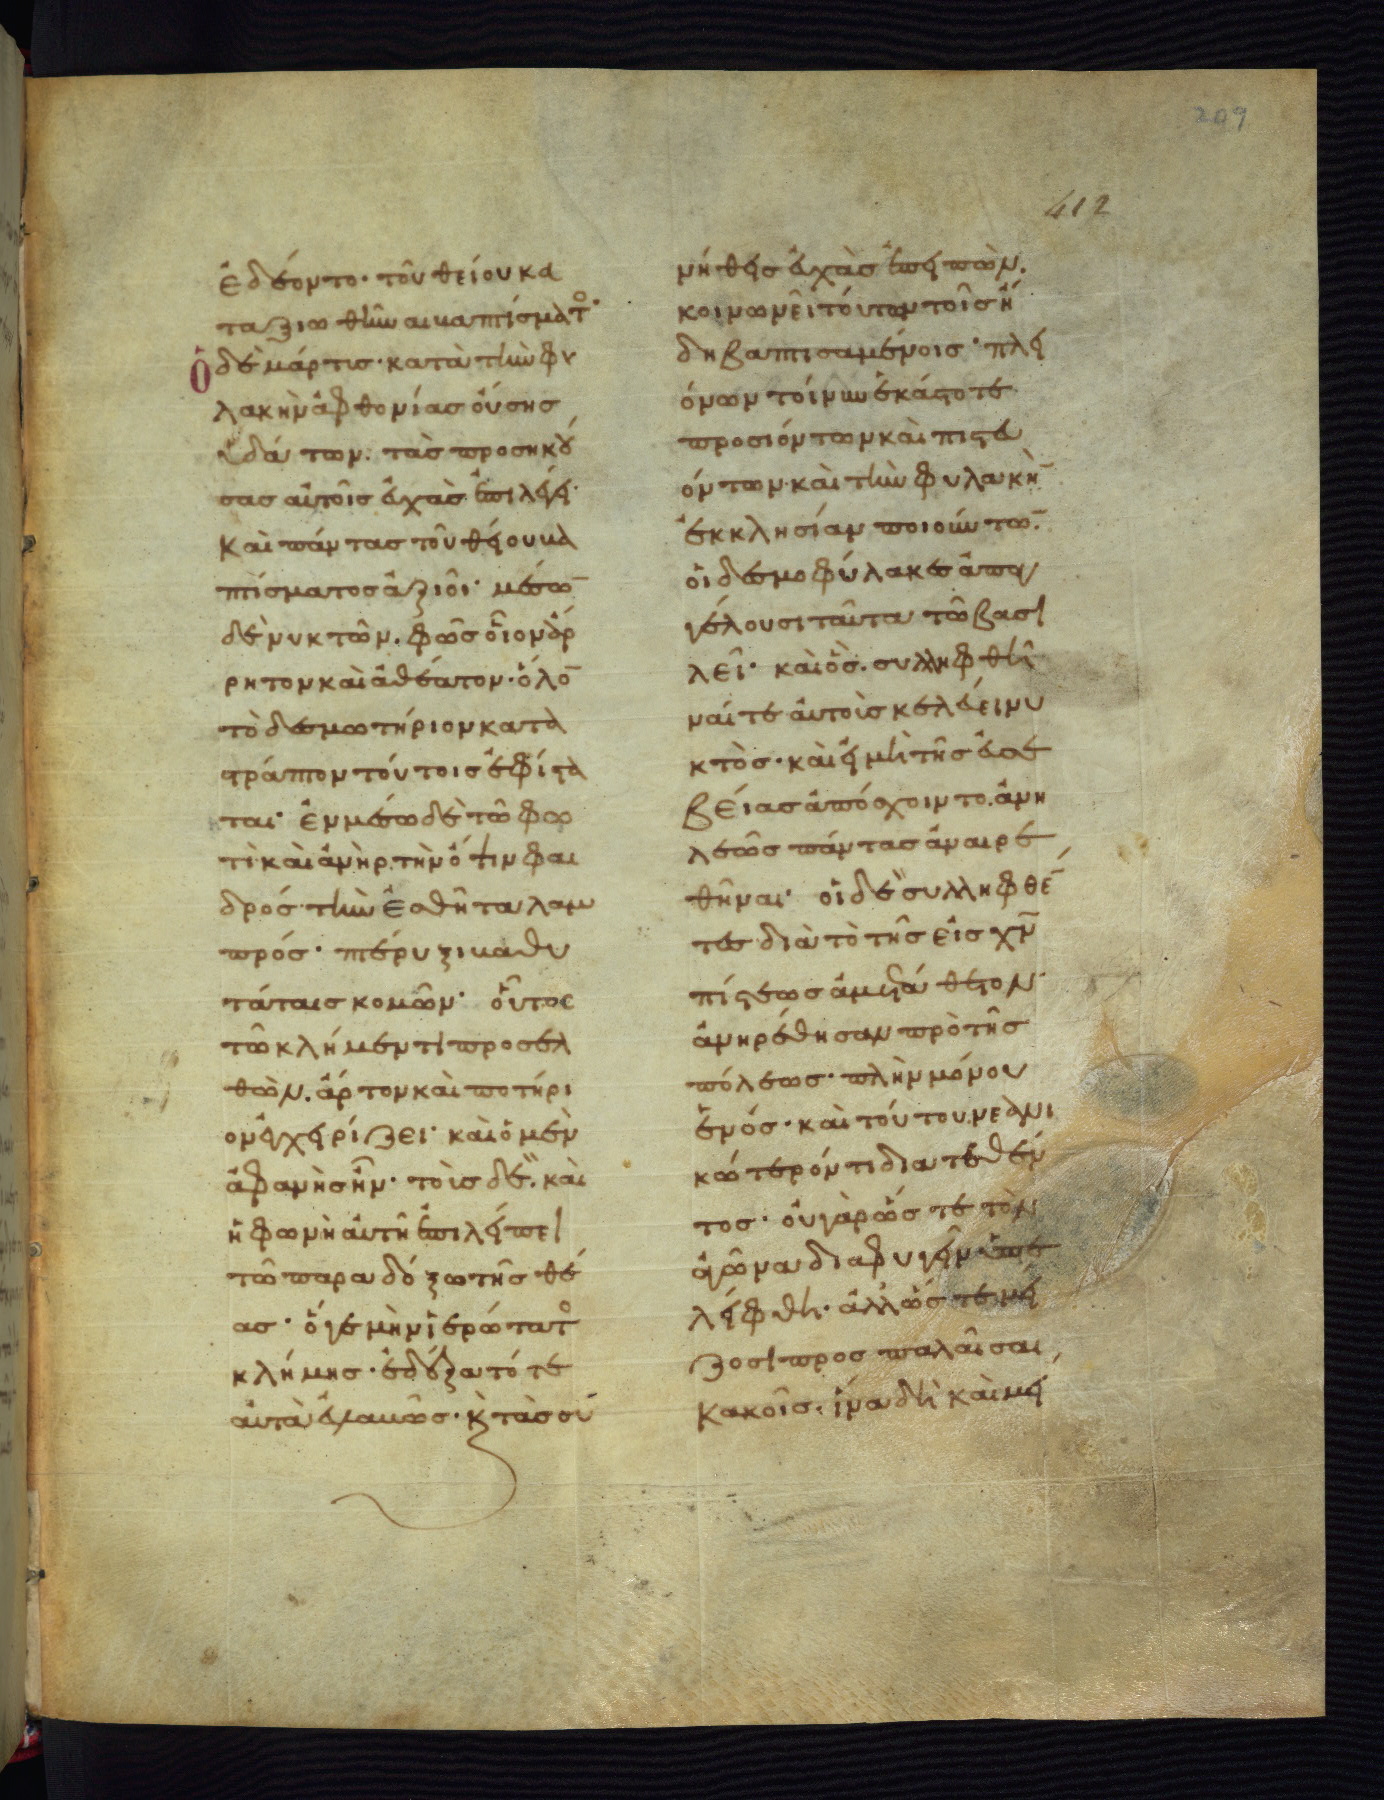 209
412
ἐδέοντο· τοῦ θείου κα
ταξιωθῆναι βαπτίσματο·
Ὁ δὲ μάρτυς· κατὰ τὴν φυ
λακὴν ἀφθονίας οὔσης
ὑδάτων· τὰς προσηκού
σας αὐτοῖς εὐχὰς ἐπιλέγει·
καὶ πάντας τοῦ θείου βα
πτίσματος ἀξιοῖ· μέσω
δὲ νυκτῶν. φῶς οἷον ἄρ
ρητον καὶ ἀθέατον· ὅλο
τὸ δεσμωτήριον κατα
στράπτον τούτοις ἐφίστα
ται· ἐν μέσω δὲ τῶ φω
τὶ καὶ ἀνὴρ. τὴν ὄψιν φαι
δρός· τὴν ἐσθῆτα λαμ
πρός· πτέρυξι καθυ
τάταις κομῶν· οὗτος
τῶ κλήμεντι προσελ
θὼν. ἄρτον καὶ ποτήρι
ον ἐγχειρίζει· καὶ ὁ μὲν
ἀφανὴς ἦν· τοῖς δὲ. καὶ
ἡ φωνὴ αὐτὴ ἐπιλείπει
τῶ παραδόξω τῆς θέ
ας· ὅγε μὴν ἱερώτατο
κλήμης· ἐδέξατό τε
αὐτὰ εὐμενῶς· κ τὰς συ
νήθεις εὐχὰς ἐπειπὼν.
κοινωνεῖ τούτων τοῖς ἤ
δη βαπτισαμένοις· πλει
όνων τοίνυν ἑκάστοτε
προσιόντων καὶ πιστευ
όντων· καὶ τὴν φυλακὴ
ἐκκλησίαν ποιούντω.
οἱ δεσμοφύλακες ἀπαγ
γέλουσι ταῦτα τῶ βασι
λεῖ· καὶ ὃς. συλληφθῆ
ναί τε αὐτοὺς κελεύει νυ
κτός· καὶ εἰ μὴ τῆς εὐσε
βείας ἀπόσχοιντο. ἀνη
λεῶς πάντας ἀναιρε
θῆναι· οἱ δὲ συλληφθέ
τες διὰ τὸ τῆς εἰς χν
πίστεως ἀμετάθετον·
ἀνηρέθησαν πρὸ τῆς
πόλεως· πλὴν μόνου
ἑνός· καὶ τούτου νεανι
κώτερόν τι διατεθέν
τος· οὐ γὰρ ὥστε τὸν
ἀγῶνα διαφυγεῖν ὑπε
λείφθη· ἀλλ' ὥστε μεί
ζοσι προσπαλαῖσαι
κακοῖς. ἵνα δὴ καὶ μεί